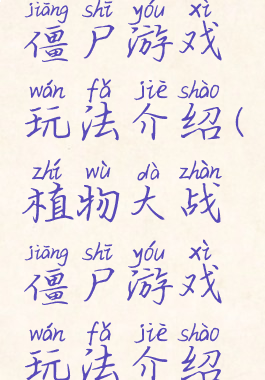 jiāng shī yóu xì
僵尸游戏
wán fǎ jiè shào
玩法介绍(
zhí wù dà zhàn
植物大战
jiāng shī yóu xì
僵尸游戏
wán fǎ jiè shào
玩法介绍